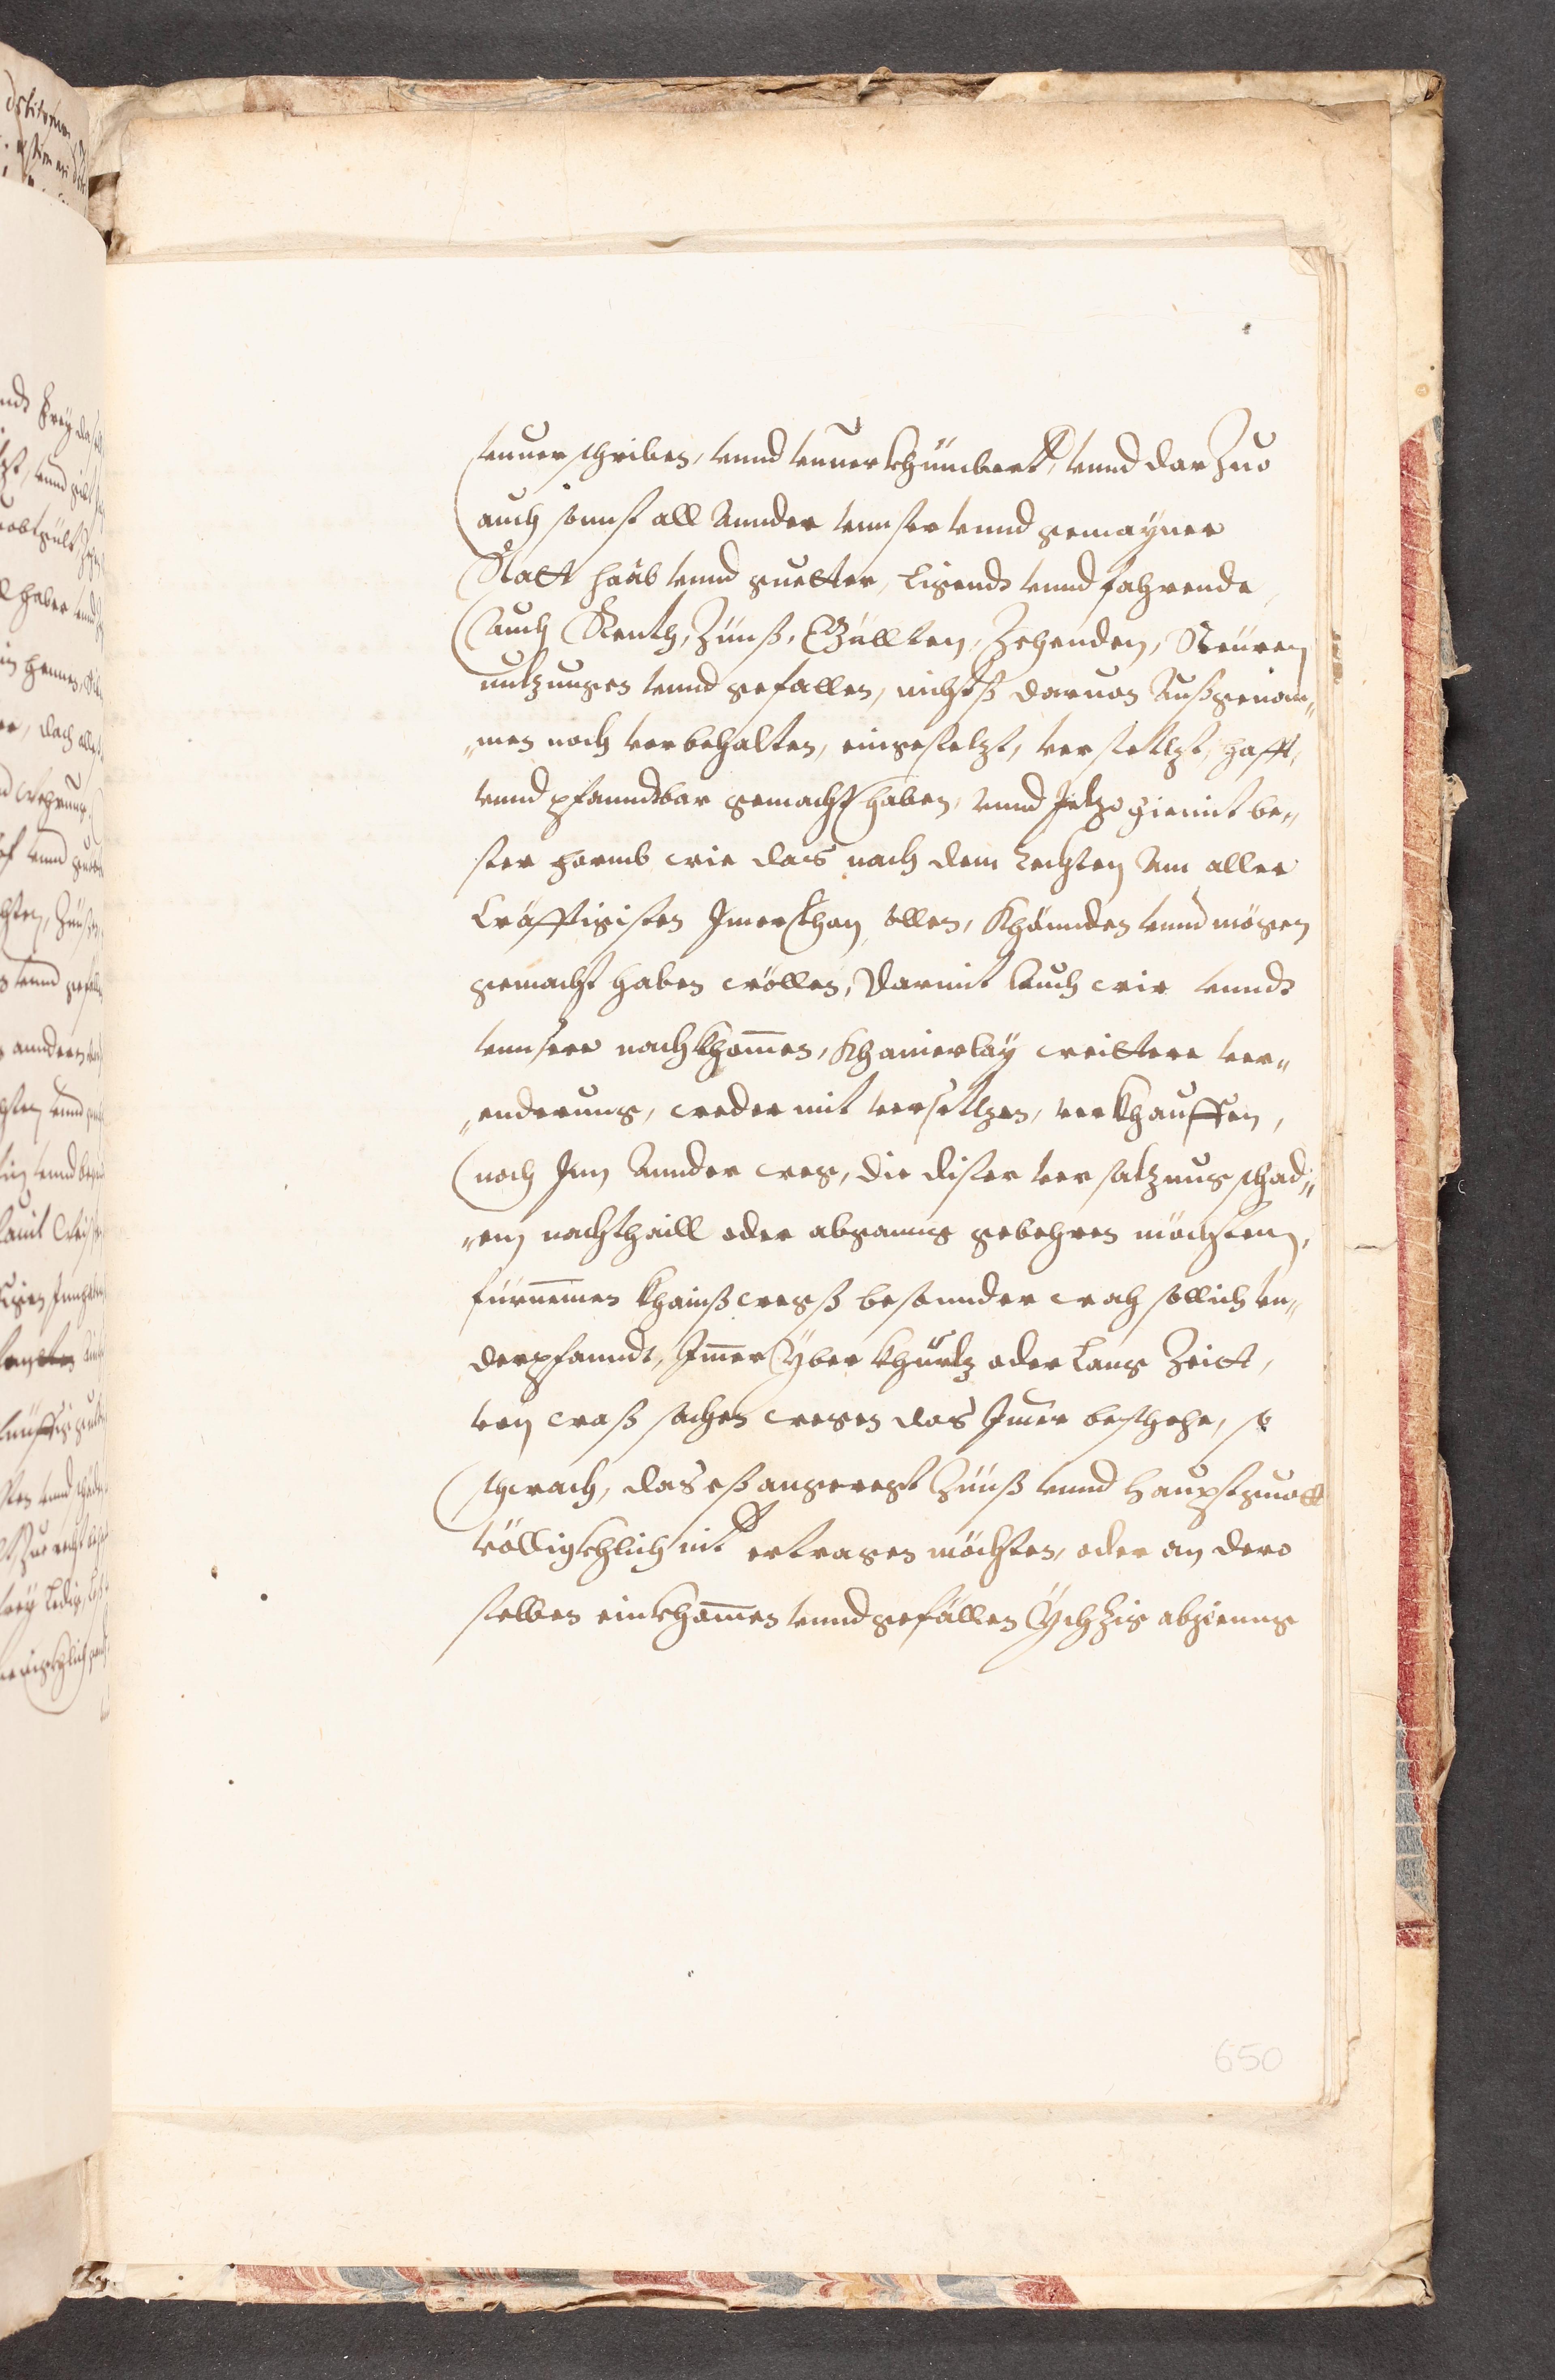 vnuerschriben, vnnd vnuerkhümbert, vnnd darZuo
auch sonnst all Annder vnnser vnnd gemayner
Statt haab vnnd guetter, Ligendt vnnd fahrende,
Auch Renth, Zünß, Güllten, Zehenden, Steüren
nutzungen vnnd gefallen, nichtß daruon Außgenom„
„men noch vorbehalten, eingesetzt, versettzt, hafft,
vnnd pfanndtbar gemacht haben, vnnd Jetzo hiemit be„
ster formb wie das nach dem Rechten Am aller
Cräfftigisten Jmer than sollen, Khönnden vnnd mögen
gemacht haben wöllen, Darmit Auch wir vnnd
vnnsere nachkhomen, Khainerlay weittere ver„
„enderung, weder mit versettzen, verkhauffen,
noch Jnn Annder weg, die diser versatzung schad„
„en nachthaill oder abganng gebehren möchten,
fürnemen khainß wegß besonnder wah sollich vn„
derpfanndt, Jmer yber khurtz oder Lang Zeitt,
von waß sachen wegen das Jmer beschehe, so
schwach, das eß angeregt Zünß vnnd haubtguott
völligkhlich nit ertragen möchten, oder an dero
selben einkhomen vnnd gefällen Ychzig abgieng
650